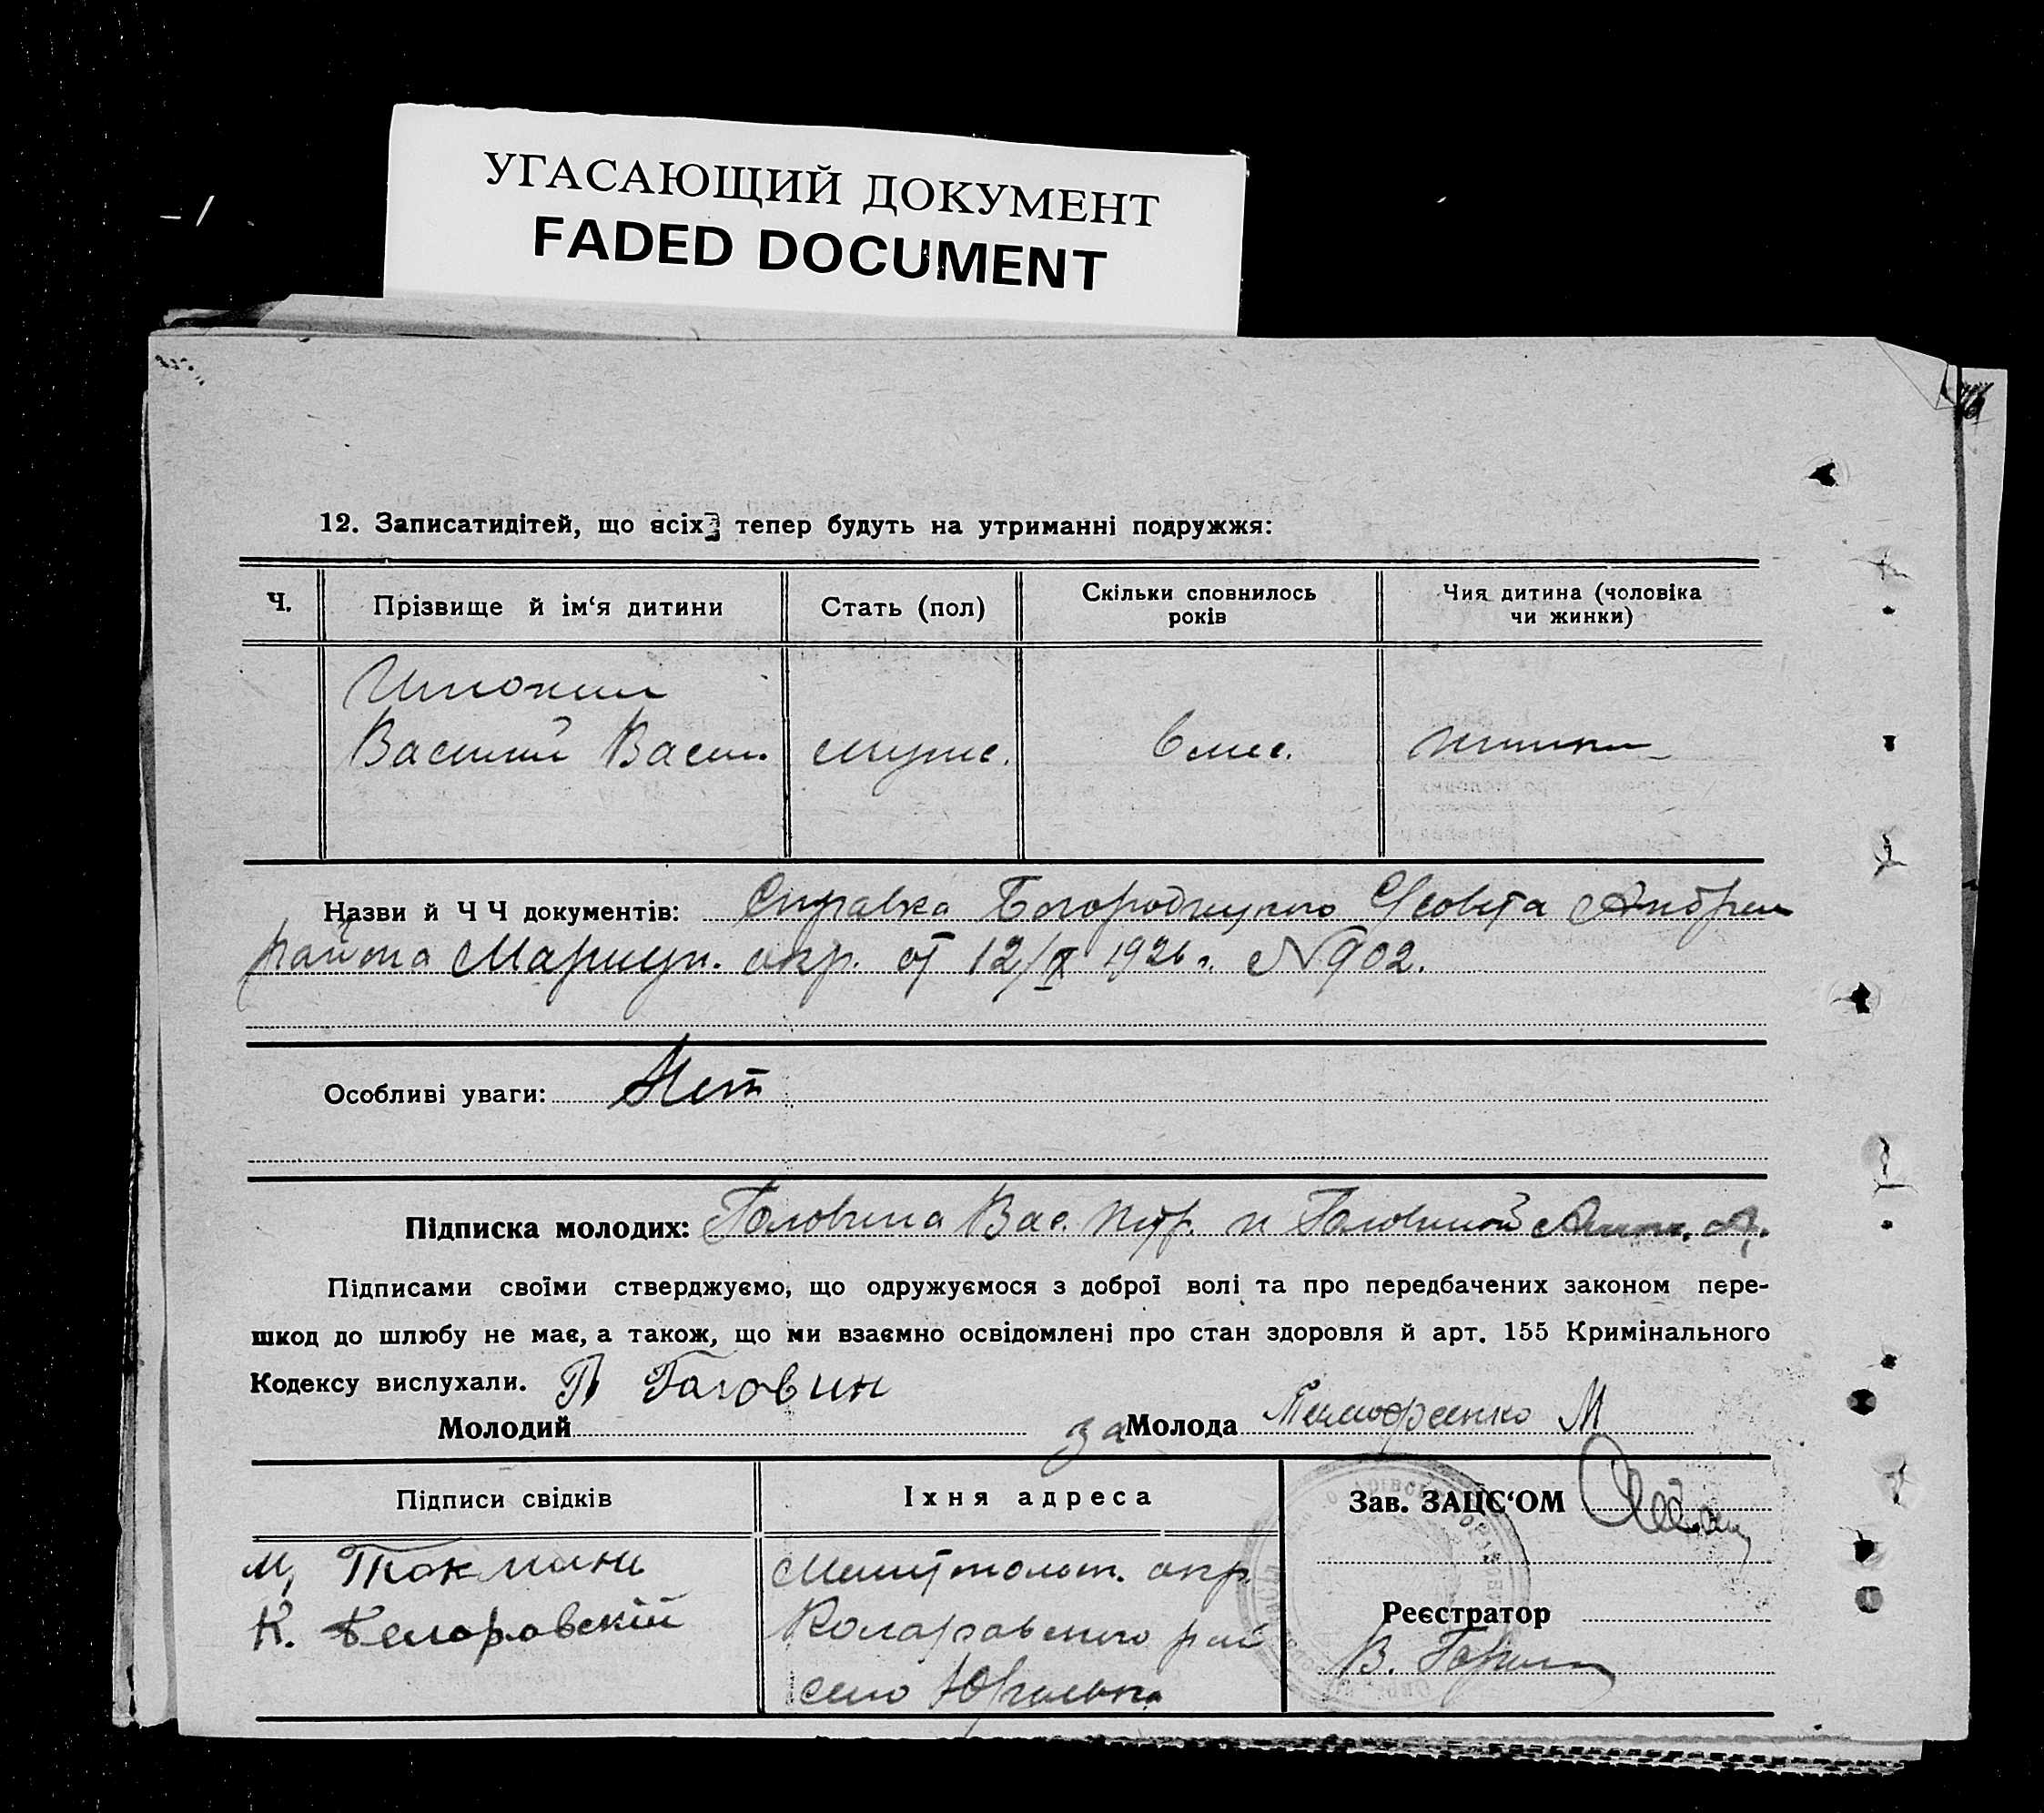 УГАСАЮЩИЙ ДОКУМЕНТ
FADED DOCUMENT
12. Записатидітей, що всіх тепер будуть на утриманні подружжя:
Ч.
Прізвище й ім‘я дитини
Стать (пол)
Скільки сповнилось
років
Чия дитина (чоловіка
чи жинки)
Василий Васил.
мужс.
6 мес.
жинки
Назви й Ч Ч документів: Справка Богородицкого С/совета Андреев
района Мариуп. окр. от 12/IX 1926 г. N 902.
Особливі уваги: Нет
Підписка молодих: Головина Вас. Петр. и Головиной
Підписами своїми стверджуємо, що одружуємося з доброї волі та про передбачених законом пере-
шкод до шлюбу не має, а також, що ми взаємно освідомлені про стан здоровля й арт. 155 Кримінального
Кодексу вислухали. Головин
Молодий
за Молода Тимофеенко М
Підписи свідків
Їхня адреса
Зав. ЗАЦС‘ОМ
М, Токмань
К.
Мелитопольск. окр.
Коларовского рай
село Юрьевка
Реєстратор
В.